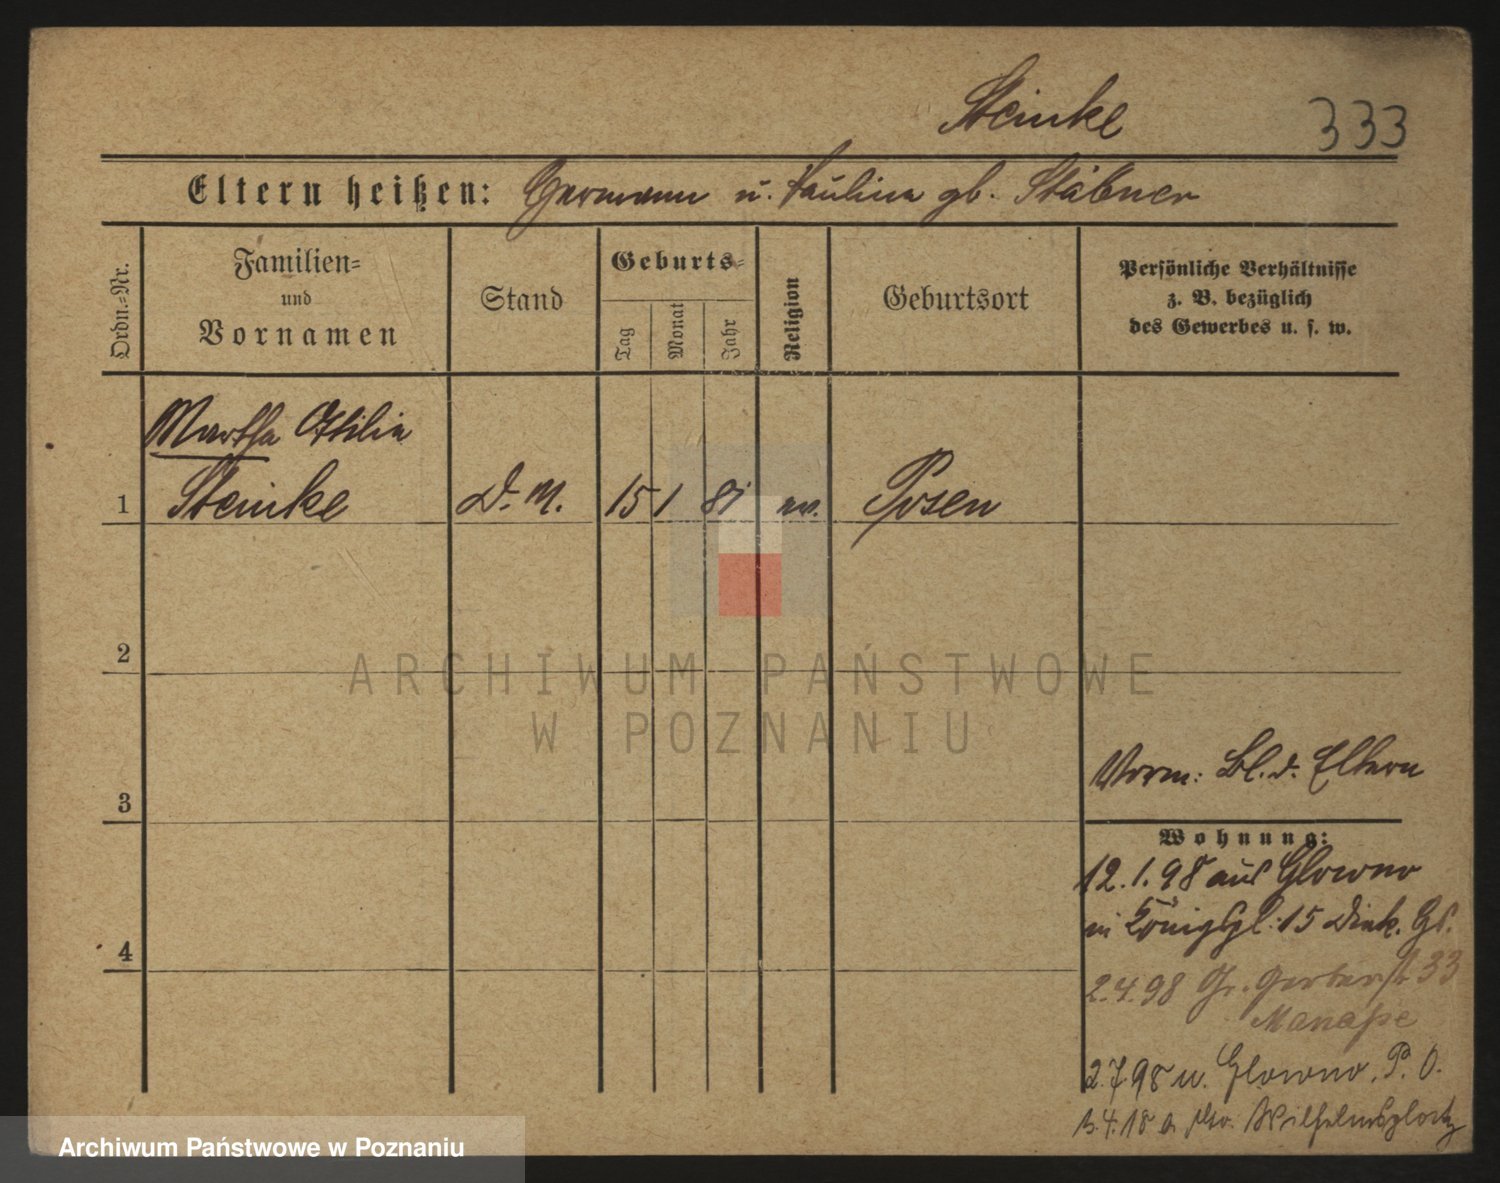 Steinke 333
Eltern heißen: Hermann u. Paulina gb. Stäbner
Ordn.-Nr.
Familien-
und
Vornamen
Stand
Geburts-
Tag
Monat
Jahr
Religion
Geburtsort
Persönliche Verhältnisse
z. B. bezüglich
des Gewerbes u. s. w.
Martha Ottilie
1 Steinke D. M. 15 1 81 ev. Posen
2
ARCHIWUM PAŃSTWOWE
W POZNANIU
Vorm: Bl. d. Eltern
3
Wohnung:
12.1.98 aus Glowno
in Königspl. 15 Diak. Hs.
4
2.4.98 Gr. Gerberstr 33
Manasse
2.7.98 n. Glowno, P. O.
Wilhelmsplatz
Archiwum Państwowe w Poznaniu